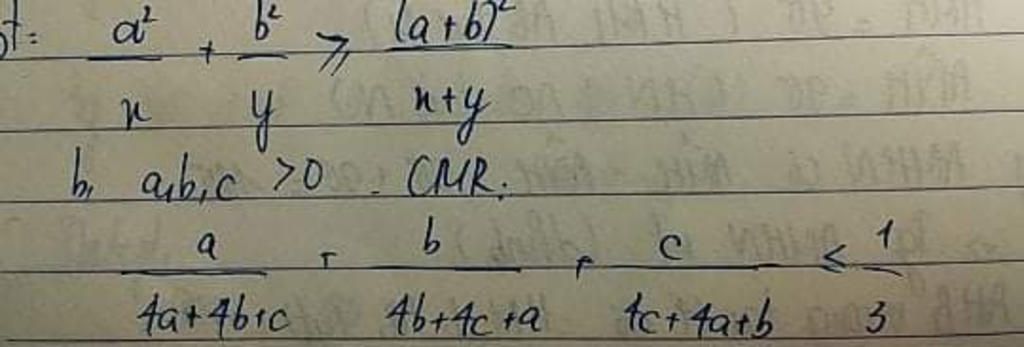 a²/x + b²/y ⩾ (a+b)²/x+y
b, a,b,c >0 . CMR:
a/4a+4b+c + b/4b+4c+a + c/4c+4a+b ≤ 1/3